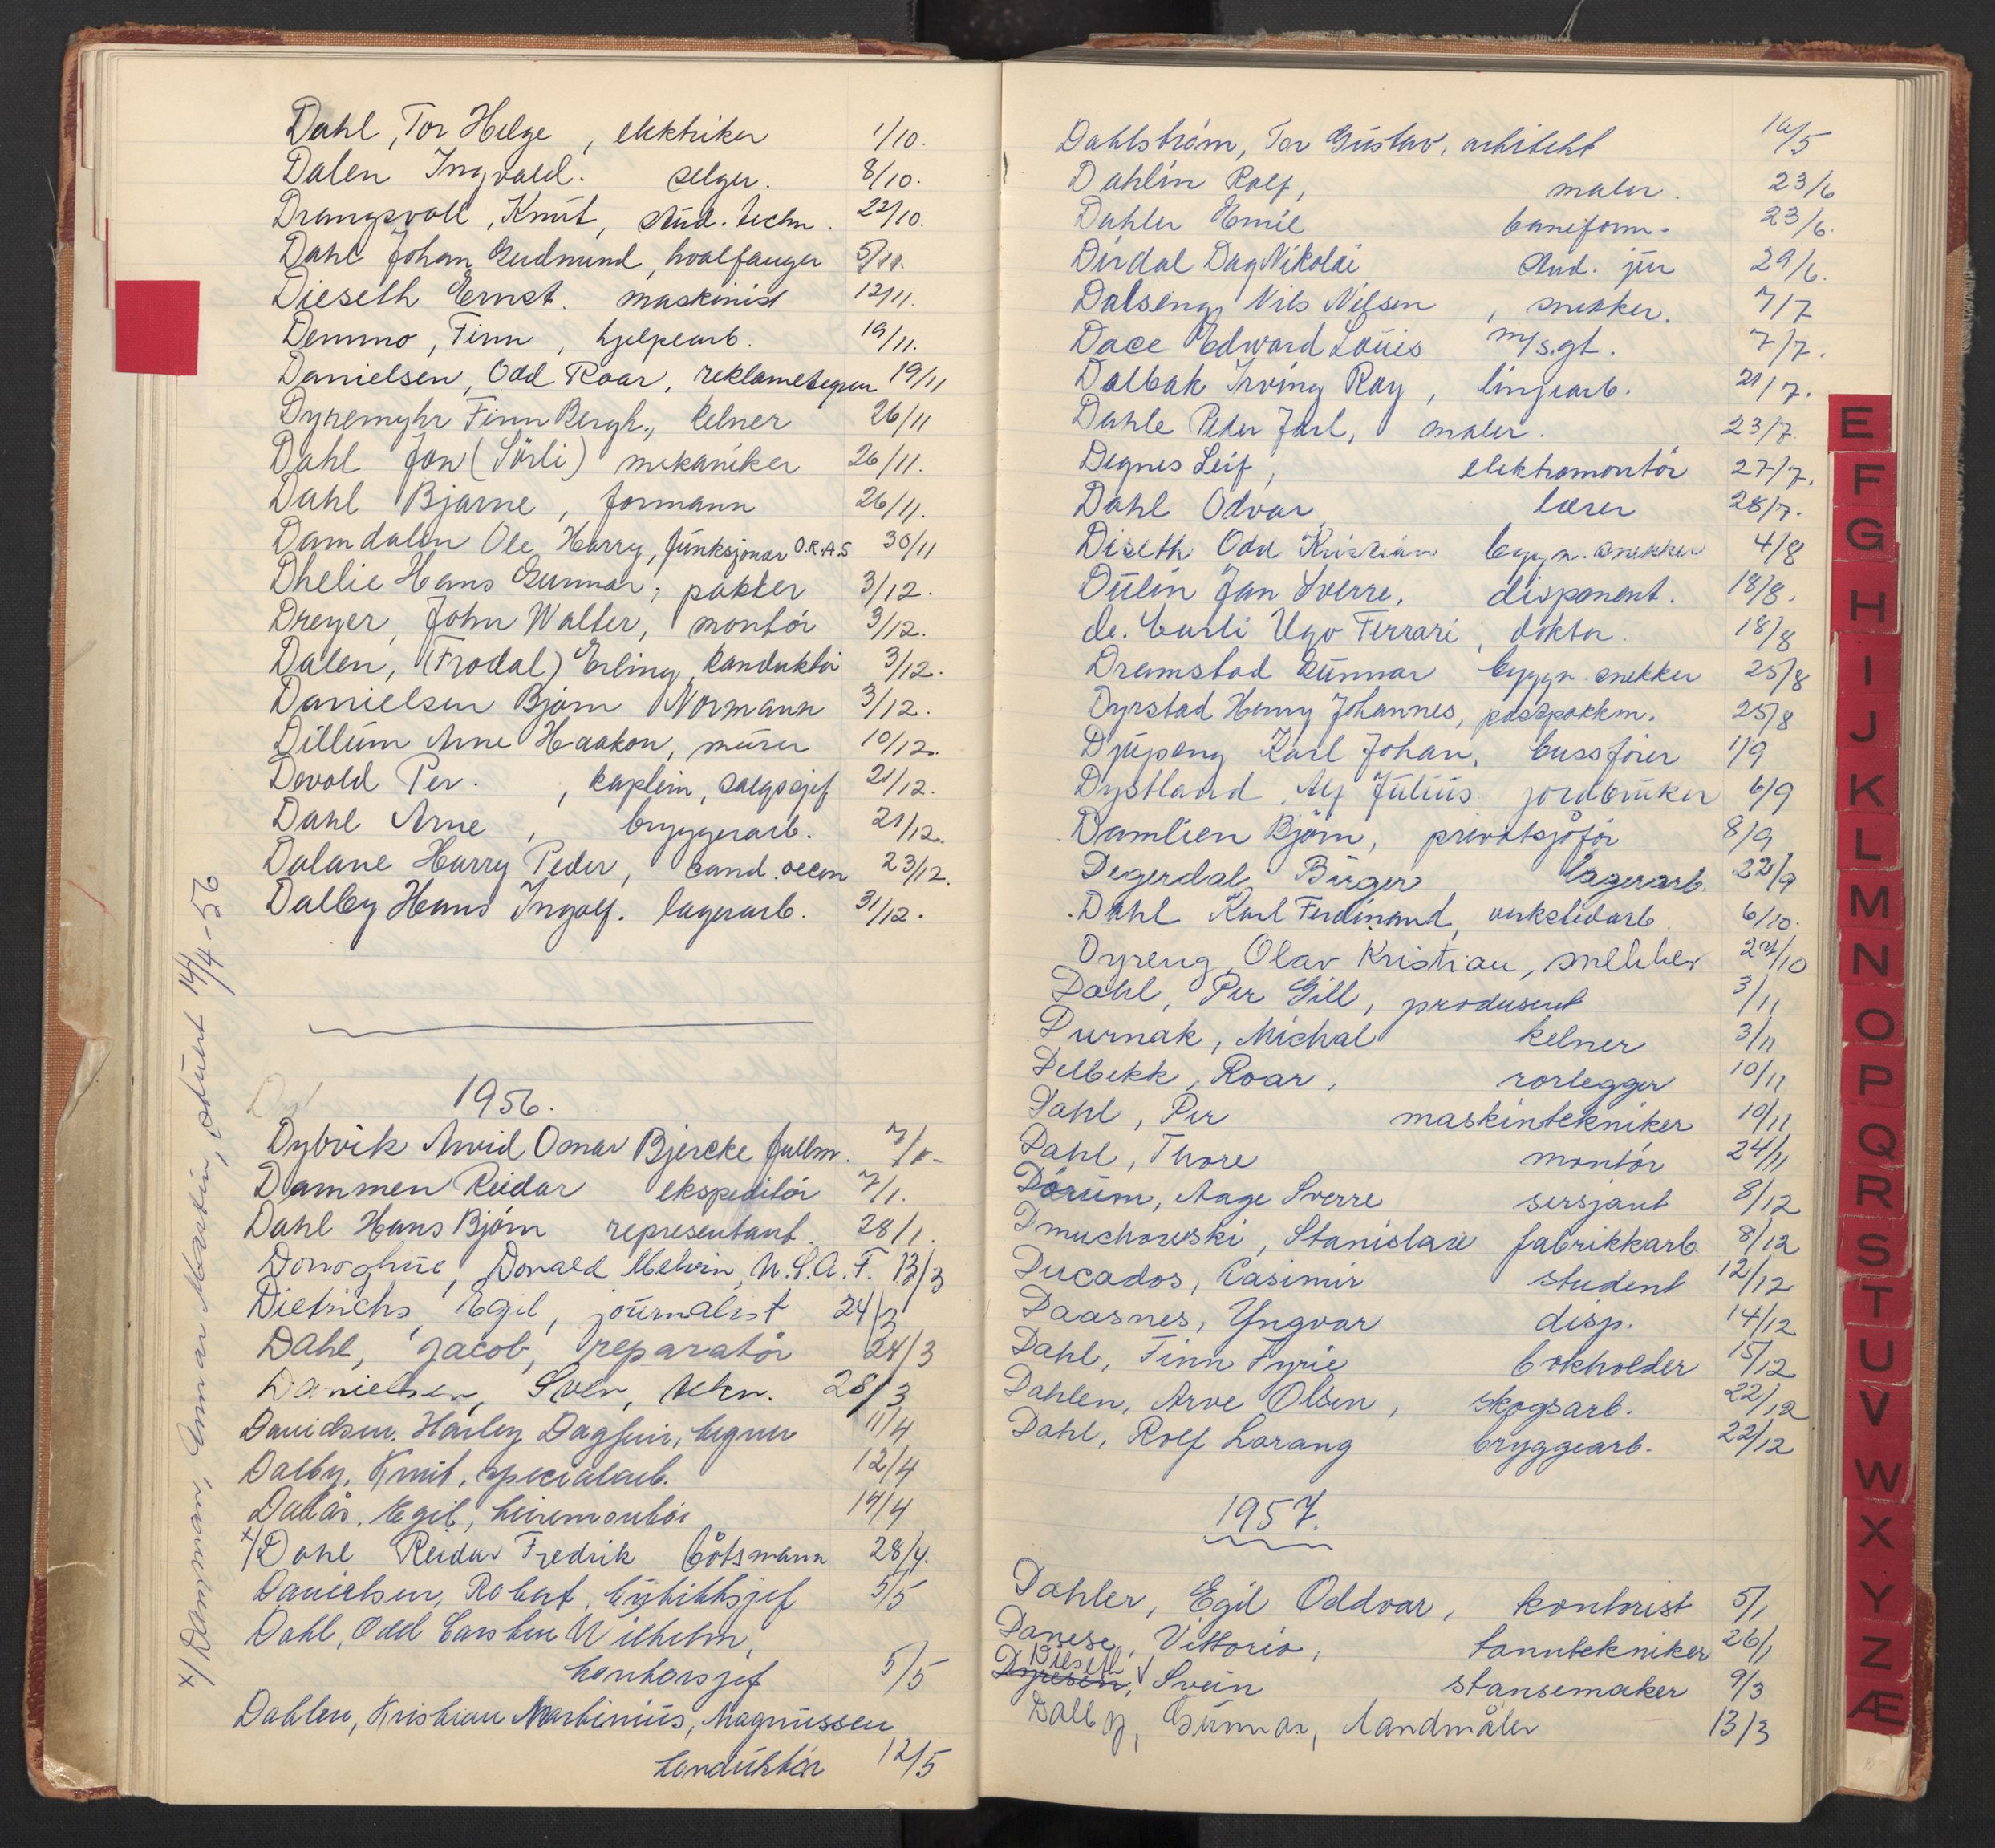 Dahl, Tor Helge, elektriker 1/10.
Dalen Ingvald. selger. 8/10.
Drangsvoll, Knut, stud. techn. 22/10.
Dahl Johan Gudmund, hvalfanger 5/11.
Dieseth Ernst. maskinist 12/11.
Demmo, Finn, hjelpearb. 19/11.
Danielsen, Odd Roar, reklametegner 19/11
Dyremyhr Finn Bergh., kelner 26/11
Dahl Jon (Sörli) mekaniker 26/11.
Dahl Bjarne, formann 26/11.
Damdalen Ole Harry, funksjonær O.R.A.S 30/11
Dhelie Hans Gunnar, pakker 3/12.
Dreyer, John Walter, montör 3/12.
Dalen, (Frodal) Erling, konduktör 3/12.
Danielsen Bjørn Normann 3/12.
Dillum Arne Haakon, murer 10/12.
Devold Per., kaptein, salgssjef 21/12.
Dahl Arne, bryggerarb. 21/12.
Dalane Harry Peder, cand. oecon 23/12.
Dalby Hans Ingolf. lagerarb. 31/12.
1956.
Dybvik Arvid Omar Bjercke fullm. 7/1.
Dammen Reidar ekspeditör 7/1.
Dahl Hans Bjørn representant. 28/1.
Donoghue, Donald Melvin, U.S.A.F. 13/3
Dietrichs, Egil, journalist 24/3
Dahl, Jacob, reparatör 24/3
Danielsen, Sven, tekn. 28/3
Davidsen. Harley Dagfinn, tegner 11/4
Dalby, Knut, specialarb. 12/4
Dalås, Egil, heismontör 14/4
x/ Dahl Reidar Fredrik båtsmann 28/4.
Danielsen, Robert, butikksjef 5/5
Dahl, Odd Carsten Wilhelm,
kontorsjef 5/5
Dahlen, Kristian Martinius, Magnussen
konduktör 12/5
x/ Dammann, Gunnar Martin, 14/4-56
Dahlström, Tor Gustav, arkitekt 14/5
Dahlin Rolf, maler. 23/6
Dahler Emil baneform. 23/6.
Dirdal Dag Nikolai stud. jur 29/6.
Dalseng, Nils Nilsen, snekker. 7/7
Dace Edward Louis m/sgt. 7/7.
Dalbak Irving Ray, linjearb. 21/7.
Dahle Peder Jarl, maler. 23/7.
Degnes Leif, elektromontör 27/7.
Dahl Odvar lærer 28/7.
Diseth Odd Kristian bygn. snekker 4/8
Dulin Jan Sverre, disponent. 18/8.
de. Carli Ugo Ferrari, doktor. 18/8
Dramstad Gunnar bygn. snekker 25/8
Dyrstad Henry Johannes, postpakkm. 25/8
Djupeng Karl Johan, bussfører 1/9
Dystland, Alf Julius jordbruker 6/9
Damlien Bjørn, privatsjåfør 8/9
Degerdal Birger, lagerarb. 22/9
Dahl Karl Ferdinand, verkstedarb. 6/10.
Dyreng, Olav Kristian, snekker 27/10
Dahl, Per Gill, produsent 3/11
Durnak, Michal kelner 3/11
Delbekk, Roar, rørlegger 10/11
Dahl, Per maskintekniker 10/11
Dahl, Thore montör 24/11
Dörum, Aage Sverre sersjant 8/12
Dmuchowski, Stanislaw fabrikkarb. 8/12
Ducados, Casimir student 12/12
Daasnes, Yngvar disp. 14/12
Dahl, Finn Fyrie bokholder 15/12
Dahlen, Arve Olsen, skogsarb. 22/12
Dahl, Rolf Lorang bryggearb. 22/12
1957.
Dahler, Egil Oddvar, kontorist 5/1
Danese, Vittorio, tanntekniker 26/1
Dieseth
Dyresen, Svein stansemaker 9/3
Dalby, Gunnar, landmåler 13/3
E
F
G
H
I
J
K
L
M
N
O
P
Q
R
S
T
U
V
W
X
Y
Z
Æ